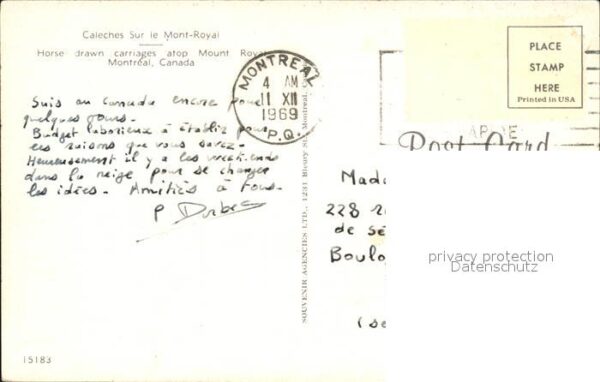 Caleches Sur le Mont-Royal
Horse drawn carriages atop Mount Royal
Montréal, Canada
Suis au Canada encore pour
quelques jours.
Budget laborieux à établir pour
les raisons que vous savez.
Heureusement il y a les week-ends
dans la neige pour se changer
les idées. Amitiés à tous.
P.
MONTREAL
4 AM
11 XII
1969
P.Q.
PLACE
STAMP
HERE
Printed in USA
Post Card
SOUVENIR AGENCIES LTD., 1231 St. Montreal,
Mada
228
de Sè
Boulo
(Se
privacy protection
Datenschutz
15183